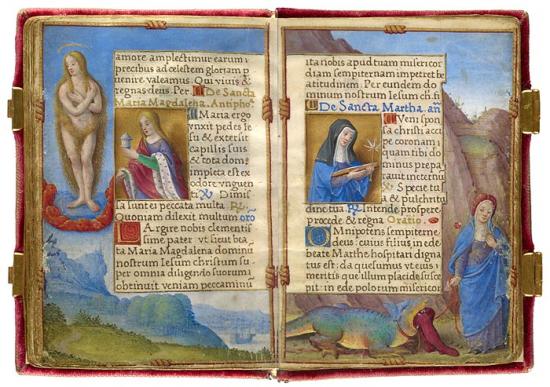 amore amplectimur earum
precibus ad celestem gloriam p
uenire valeamus. Qui viuis &
regnas deus. Per. De Sancta
Maria Magdalena. Antipho.
Maria ergo
vnxit pedes Ie
su & extersit
capillis suis
& tota dom9
impleta est ex
odore vnguen
ti. Dimis
sa sunt ei peccata multa
Quoniam dilexit multum oro
Largire nobis clementissi
sime pater vt sicut bea
ta Maria Magdalena dominū
nostrum Iesum christum su
per omnia diligendo suorum
obtinuit veniam peccaminū
ita nobis apud tuam misericor
diam sempiternam impetret be
atitudinem. Per eundem do
minum nostrum Iesum ch.
De Sancta Martha. añ
Veni spon
sa christi acci
pe coronam
quam tibi do
minus prepa
rauit in eternū
Specie tua
& pulchritu
dine tua Intende prospere
procede & regna Oratio.
Omnipotens sempiterne
deus: cuius filius in ede
beate Marthe hospitari dignā
tus est: da quesumus vt eius
meritis que illum placide susce
pit in ede polorum misericor